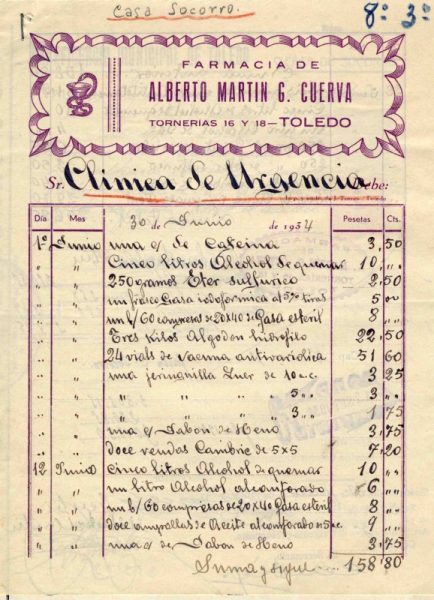 Casa Socorro.
8º 3º
FARMACIA DE
ALBERTO MARTIN G. CUERVA
TORNERIAS 16 Y 18 — TOLEDO
Sr. Clinica de Urgencia Debe:
Día Mes 30 de Junio de 1934 Pesetas Cts.
1º Junio una c/ de Cafeina 3,50
" " Cinco litros Alcohol de quemar 10,""
" " 250 gramos Eter sulfurico 2,50
" " un frasco Gasa iodoformica al 5% tiras 5 00
" " un b/ 60 compresas de 20x40 de Gasa esteril 8 "
" " Tres Kilos Algodon hidrofilo 22,50
" " 24 vials de vacuna antivariolica 51 60
" " una jeringuilla Luer de 10 c.c. 3 25
" " " " " 5 " 3 "
" " " " " 3 " 1 75
" " una c/ Jabon de Heno 3,75
" " doce vendas Cambric de 5x5 7,20
12 Junio Cinco litros Alcohol de quemar 10 ""
" " un litro Alcohol alcanforado 6 ""
" " un b/ 60 compresas de 20x40 Gasa esteril 8 "
" " doce ampollas de Aceite alcanforado 5 c.c. 9 ""
" " una c/ de Jabon de Heno 3,75
Suma y sigue 158'80